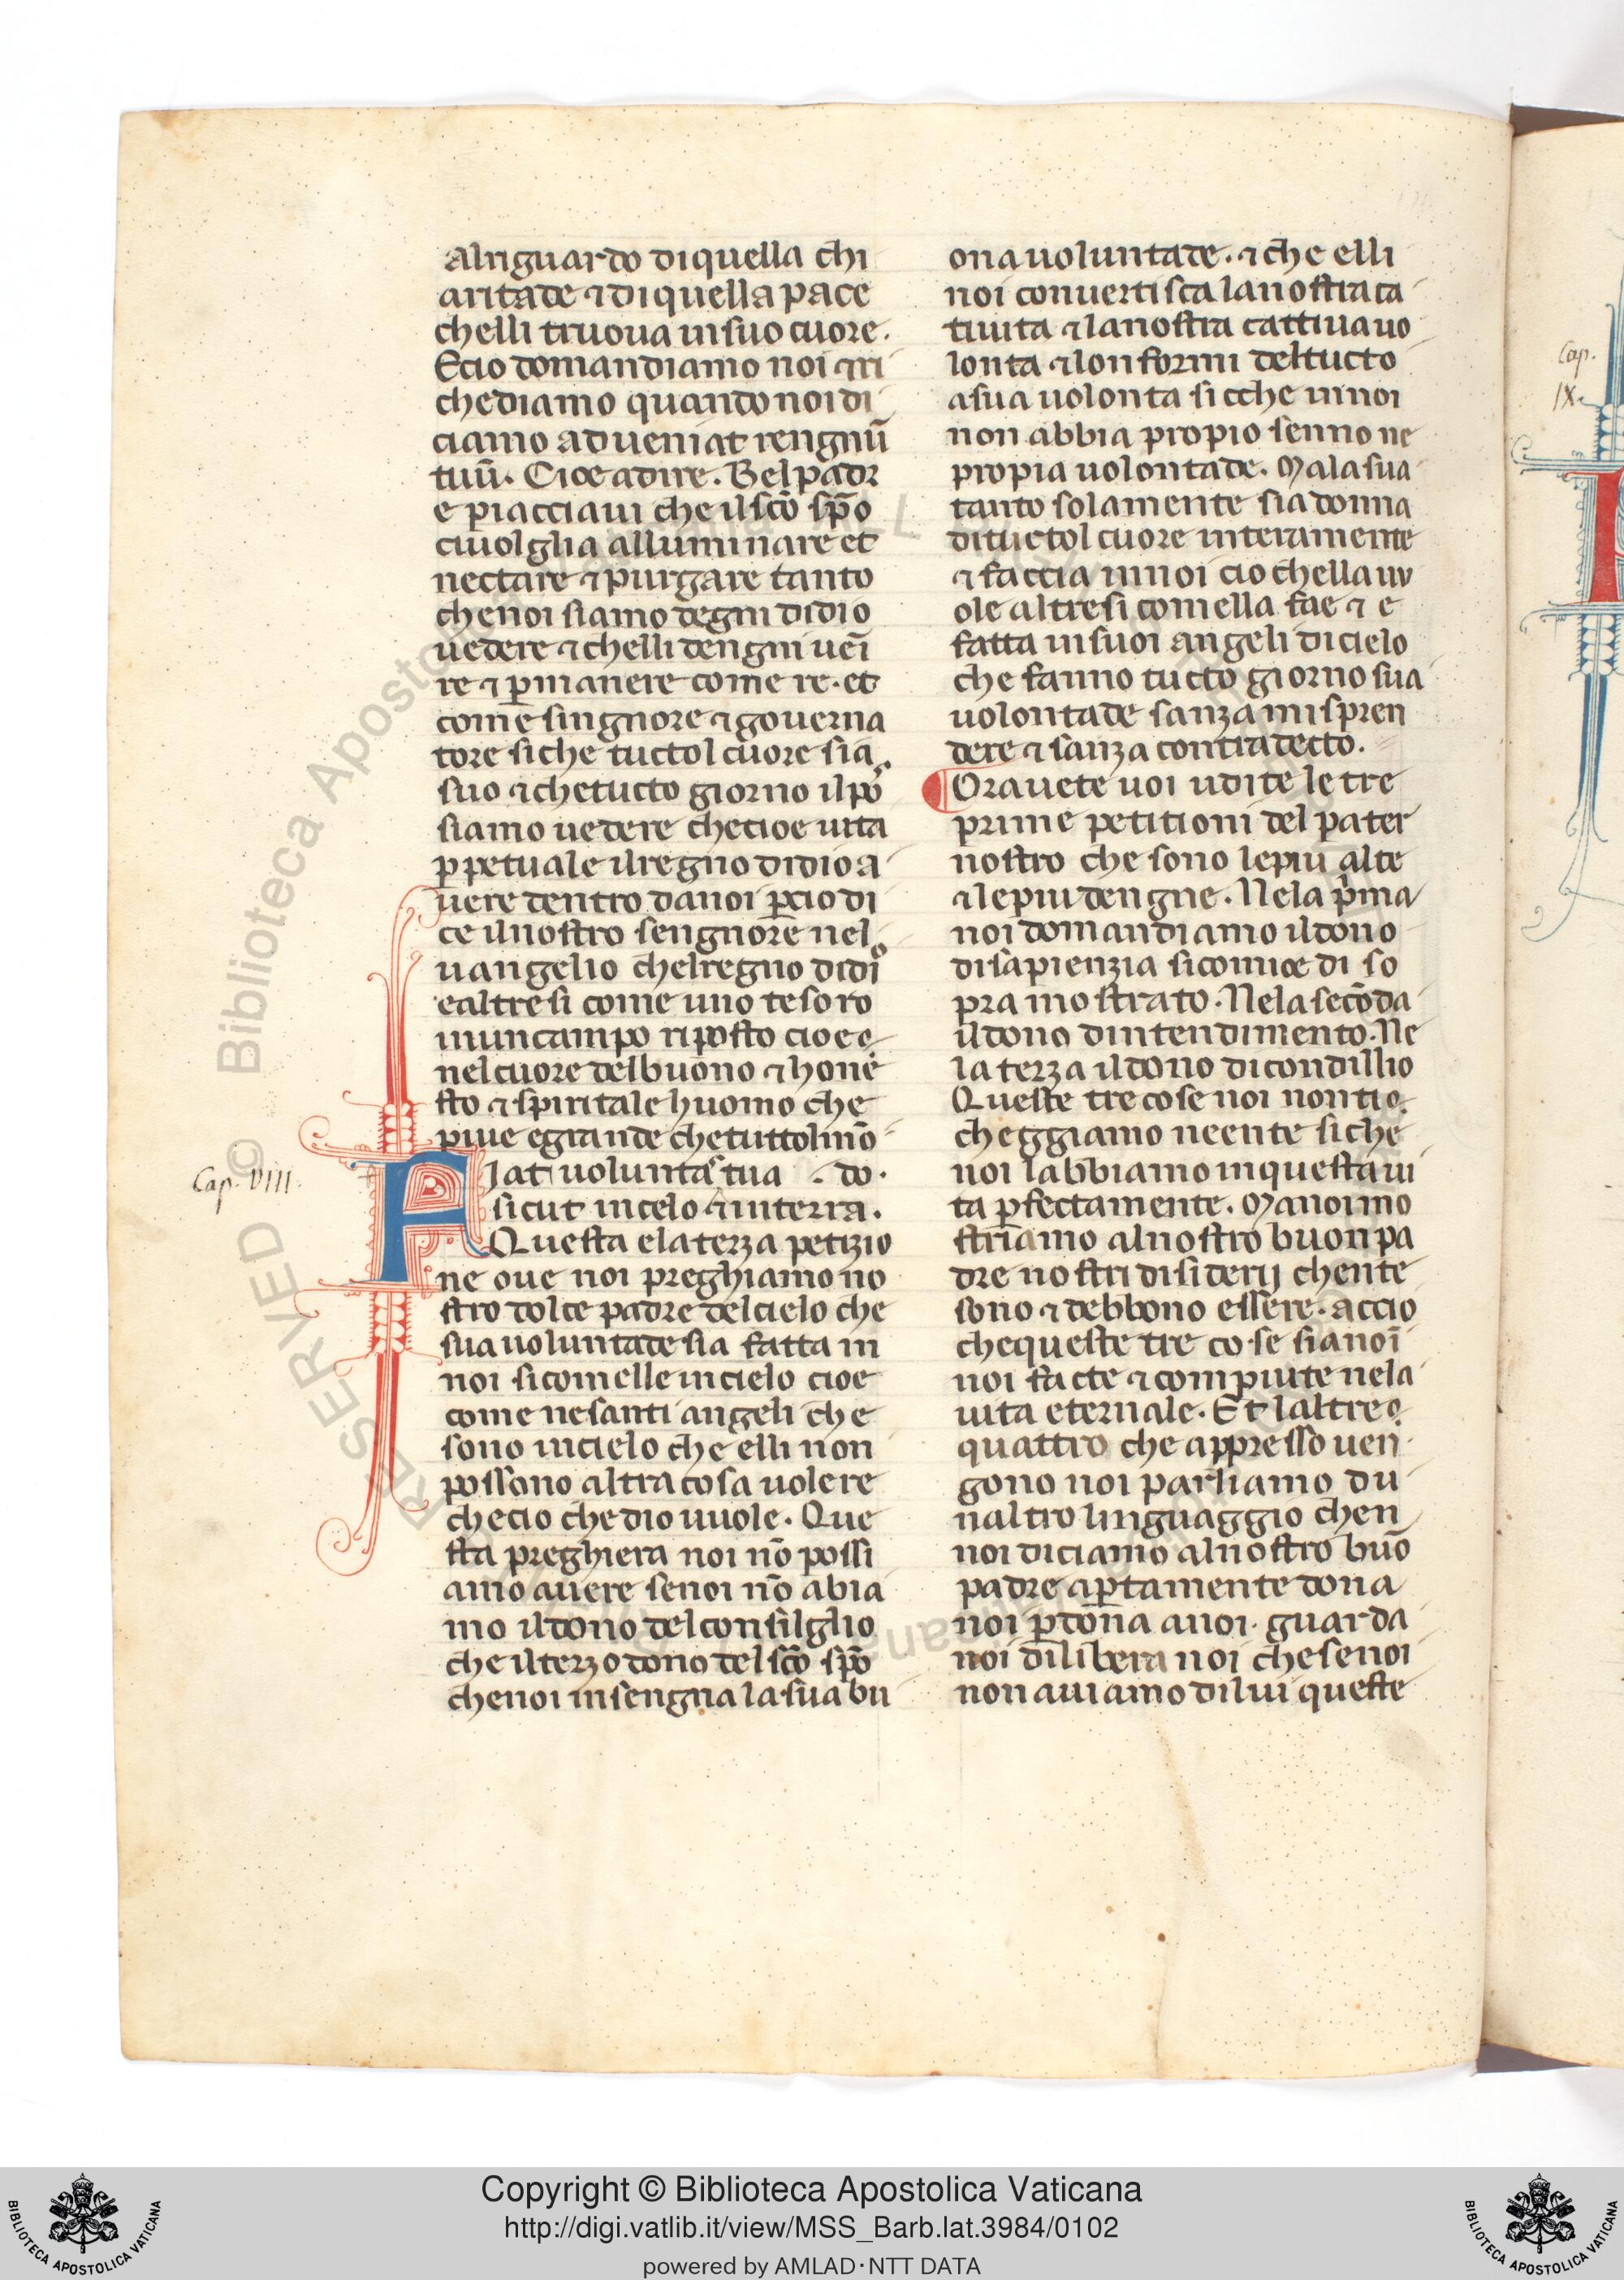 alriguardo diquella chi
aritade ⁊ diquella pace
chelli truova insuo cuore.
Ecio domandiamo noi ⁊ ri
chediamo quando noi di
ciamo adueniat rengnū
tuū. Cioe adire. Bel padr
e piacciaui che il sc̄o sp̄o
ciuolglia alluminare et
nectare ⁊ purgare tanto
che noi siamo degni didio
uedere ⁊ chelli dengni ueī
re ⁊ ꝑmanere come re. et
come singnore ⁊ gouerna
tore siche tuctol cuore sia
suo ⁊ chetucto giorno il poꝰ
siamo uedere checioe uita
ꝑpetuale ilregno didio a
uere dentro danoi ꝑcio di
ce ilnostro sengnore nel
uangelio chelregno didīo
ealtresi come uno tesoro
inuncampo riposto cioe e
nelcuore delbuono ⁊ hone
sto ⁊ spiritale huomo che
piue egrande chetuttolmō
Cap. VIII.
FIat uoluntas tua . do.
sicut incelo ⁊ interra.
Questa elaterza petizio
ne oue noi preghiamo no
stro dolce padre delcielo che
sua uoluntade sia fatta in
noi sicomelle incielo cioe
come nesanti angeli che
sono incielo che elli non
possono altra cosa uolere
checio che dio uuole. Que
sta preghiera noi nō possi
amo auere senoi nō abia
mo ildono delconsilglio
che ilterzo dono del sc̄o sp̄o
chenoi insengna la sua bu
ona uoluntade. ⁊ che elli
noi conuertisca lanostra ca
tiuita ⁊ lanostra cattiua uo
lonta ⁊ lonformi deltucto
asua uolonta sicche innoi
non abbia propio senno ne
propia uolontade. Malasua
tanto solamente sia donna
dituctol cuore interamente
⁊ faccia innoi cio chella uu
ole altresi comella fae ⁊ e
fatta insuoi angeli dicielo
che fanno tucto giorno sua
uolontade sanza mispren
dere ⁊ sanza contradecto.
Orauete uoi udite le tre
prime petitioni del pater
nostro che sono lepiu alte
⁊ lepiu dengne. Nela pͥma
noi domandiamo ildono
disapienzia sicomoe di so
pra mostrato. Nela secōda
ildono dintendimento. Ne
la terza ildono dicondillio
Queste tre cose noi nontio
cheggiamo neente siche
noi labbiamo inquesta ui
ta ꝑfectamente. Ma noi mo
striamo alnostro buon pa
dre nostri disiderij chente
sono ⁊ debbono essere. accio
chequeste tre cose siano ī
noi facte ⁊ compiute nela
uita eternale. Et laltre
quattro che appresso uen
gono noi parliamo du
naltro linguaggio chen
noi diciamo alnostro buō
padre aꝑtamente dona
noi ꝑdona anoi. guarda
noi dilibera noi che senoi
non auiamo dilui queste
Cap.
IX.
© Biblioteca Apostolica Vaticana ALL RIGHTS RESERVED
Copyright © Biblioteca Apostolica Vaticana
http://digi.vatlib.it/view/MSS_Barb.lat.3984/0102
powered by AMLAD·NTT DATA
BIBLIOTECA APOSTOLICA VATICANA
BIBLIOTECA APOSTOLICA VATICANA